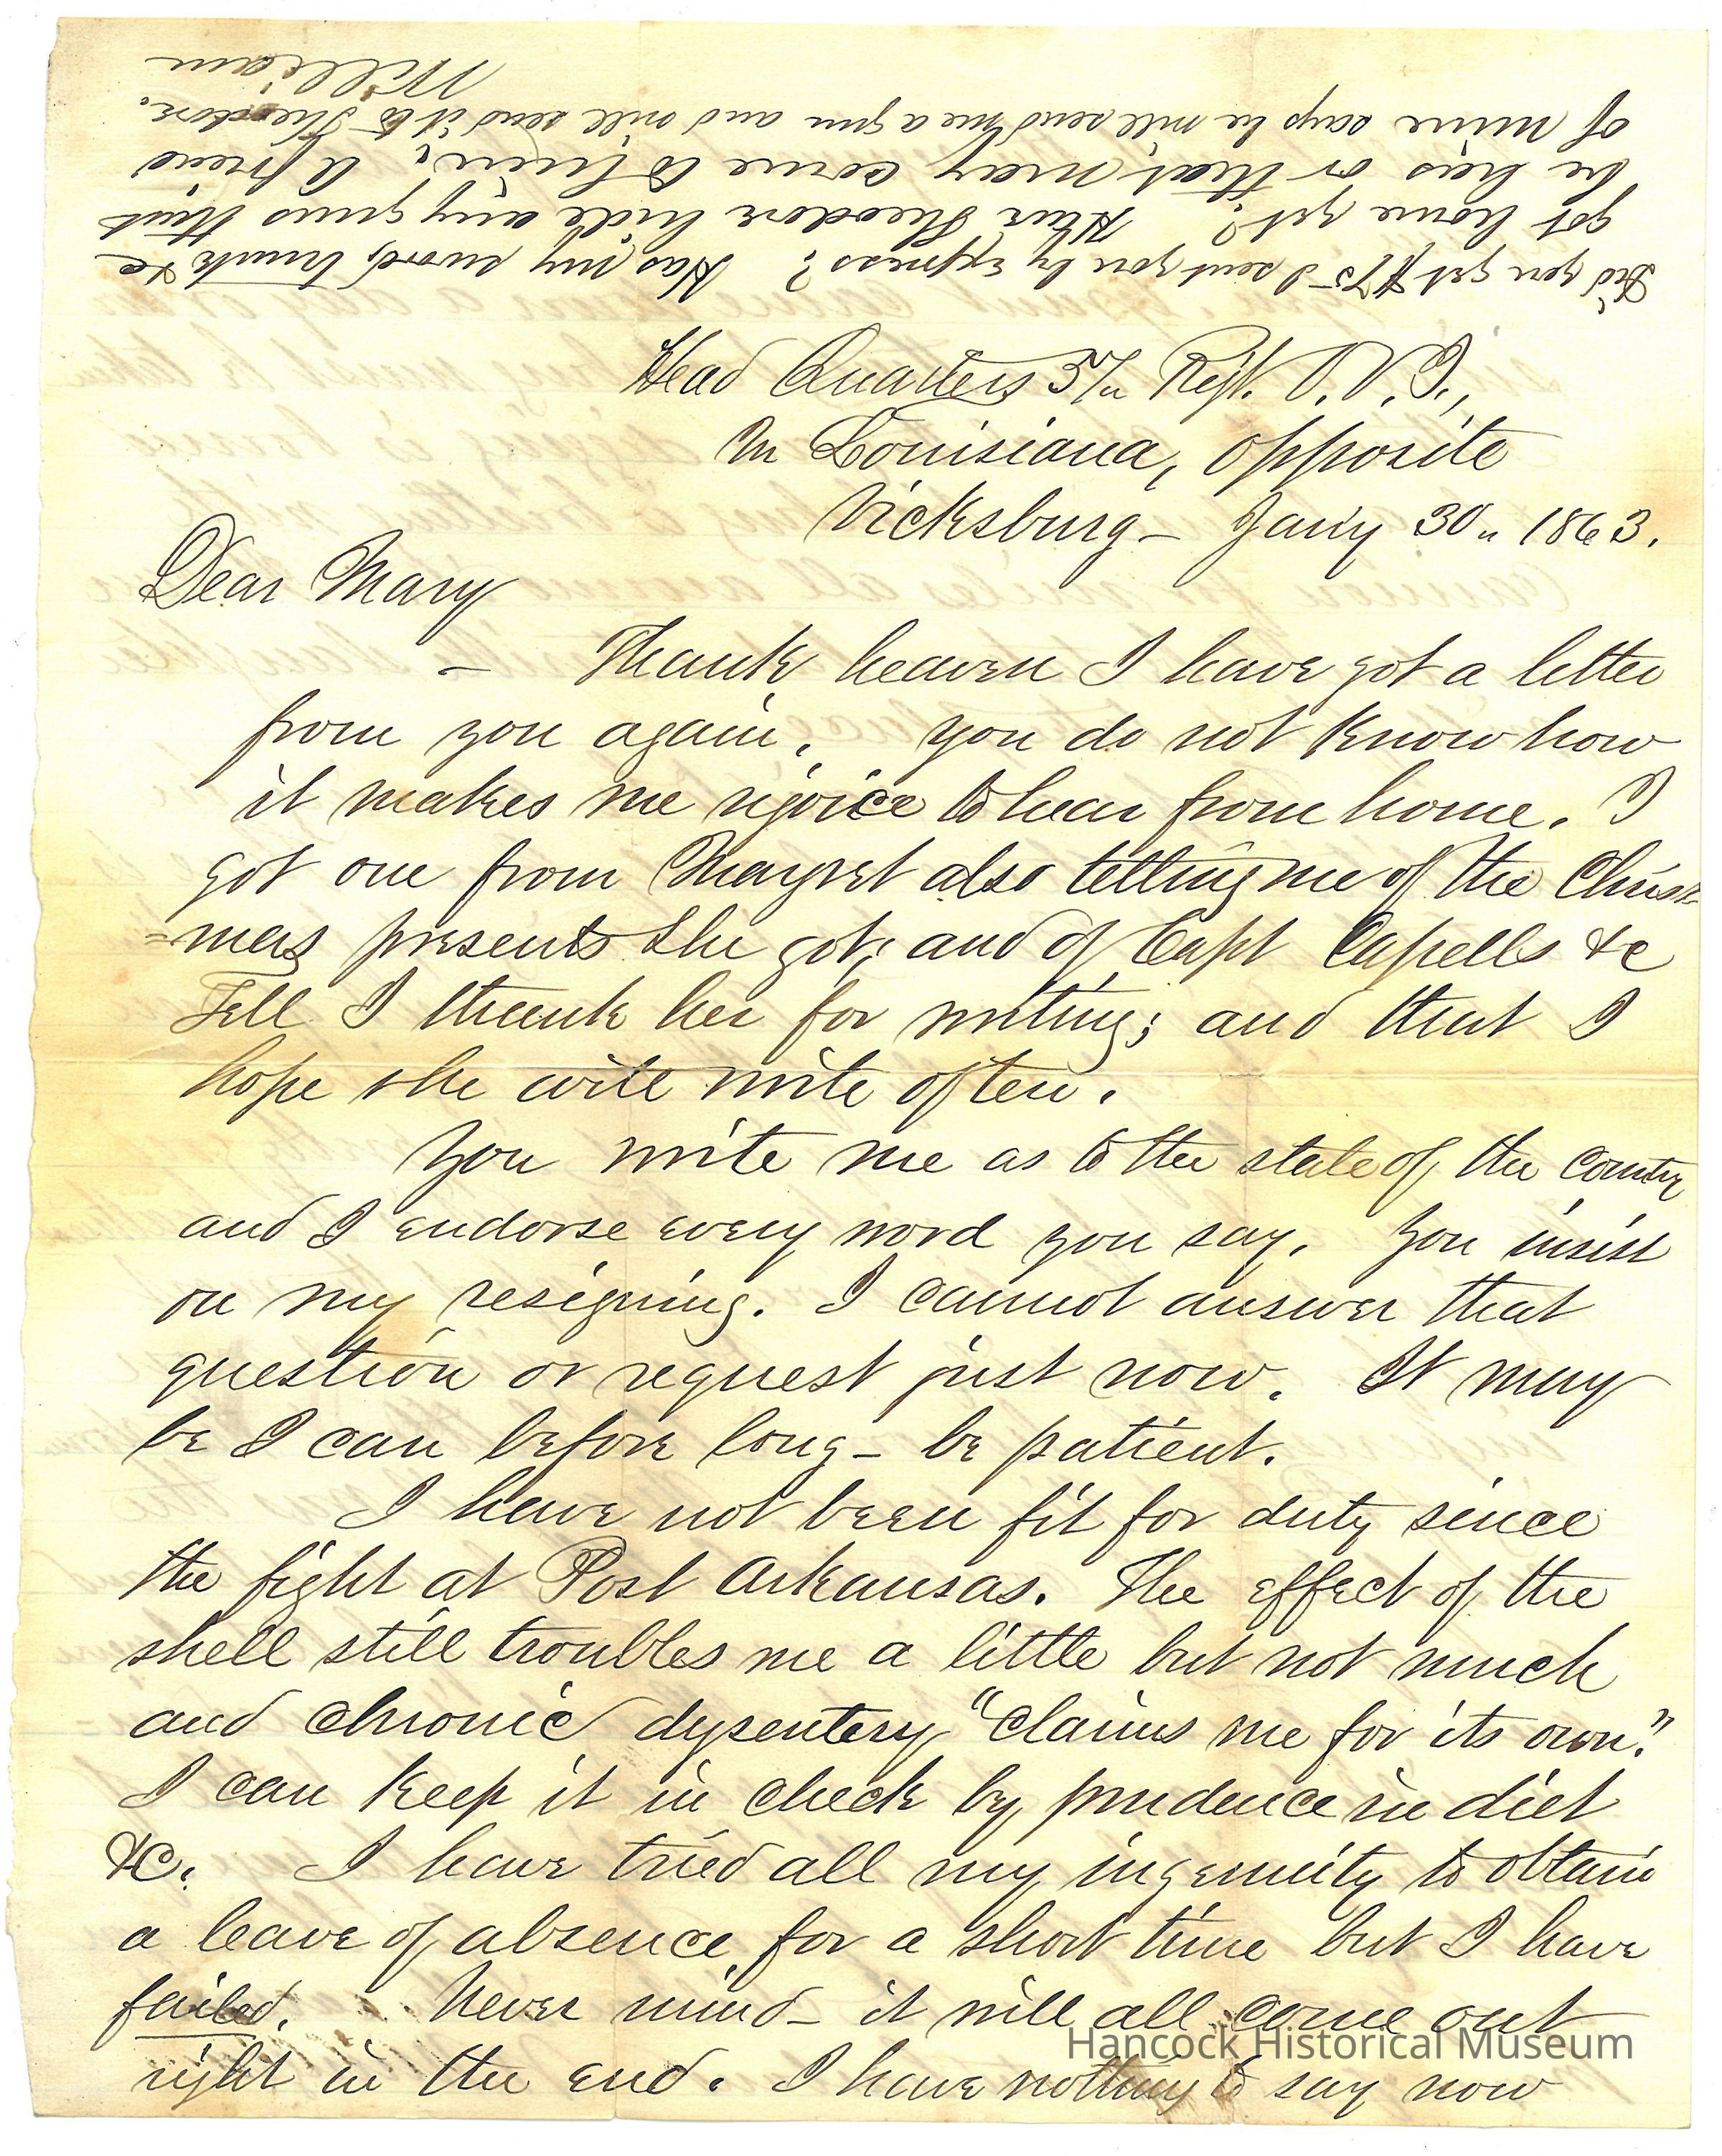 Did you get $75 I sent you by Express? Has my sword, trunk &c
got home yet? Has Theodore hide any guns that
be his or that may come to him. A friend
of mine says he will send me a gun and will send it to Theodore.
William
Head Quarters 57th Regt. O. V. I.,
In Louisiana, opposite
Vicksburg - Jany 30th 1863.
Dear Mary
- Thank heaven I have got a letter
from you again. You do not know how
it makes me rejoice to hear from home. I
got one from Margret also telling me of the Christ-
=mas presents she got; and of Capt Capells &c
Tell I thank her for writing; and that I
hope she will write often.
You write me as to the state of the country
and I endorse every word you say. You insist
on my resigning. I cannot answer that
question or request just now. It may
be I can before long - be patient.
I have not been fit for duty since
the fight at Post Arkansas. The effect of the
shell still troubles me a little but not much
and chronic dysentery "claims me for its own."
I can keep it in check by prudence in diet
&c. I have tried all my ingenuity to obtain
a leave of absence for a short time but I have
failed. Never mind - it will all come out
right in the end. I have nothing to say now
Hancock Historical Museum